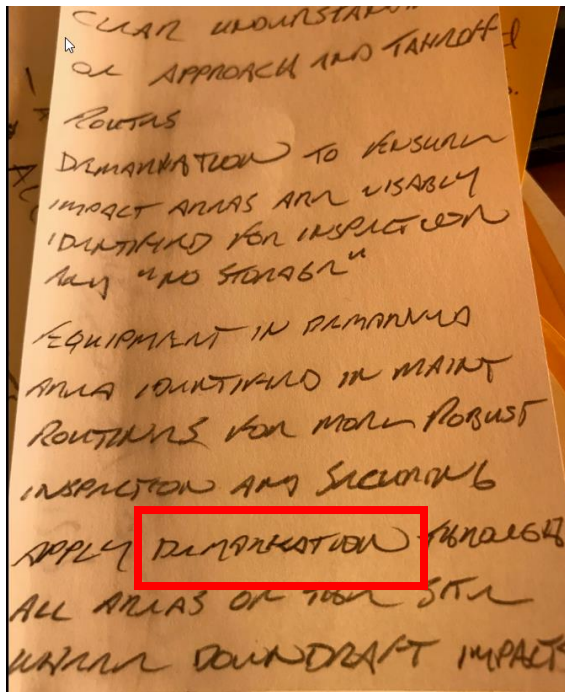 CLEAR UNDERSTAND
OF APPROACH AND TAKEOFF
ROUTES
DEMARKATION TO ENSURE
IMPACT AREAS ARE VISABLY
IDENTIFIED FOR INSPECTION
AND "NO STORAGE"
EQUIPMENT IN DEMARKED
AREA IDENTIFIED IN MAINT
ROUTINES FOR MORE ROBUST
INSPECTION AND SECURING
APPLY DEMARKATION THROUGH
ALL AREAS OF THE SITE
WHERE DOWNDRAFT IMPACTS